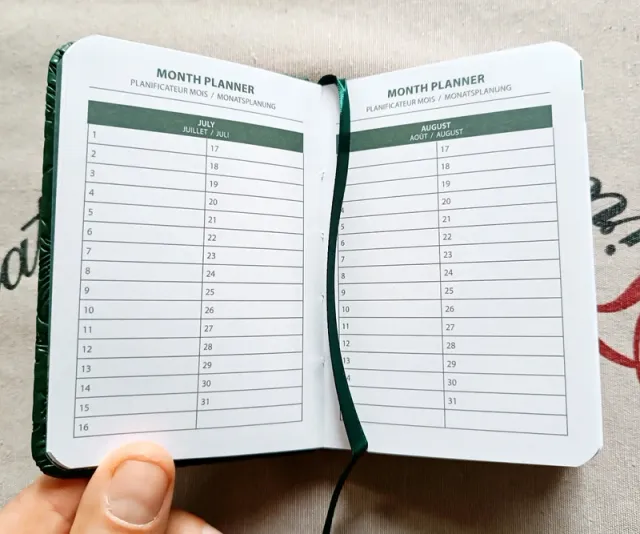 MONTH PLANNER
PLANIFICATEUR MOIS / MONATSPLANUNG
JULY
JUILLET / JULI
1 17
2 18
3 19
4 20
5 21
6 22
7 23
8 24
9 25
10 26
11 27
12 28
13 29
14 30
15 31
16
MONTH PLANNER
PLANIFICATEUR MOIS / MONATSPLANUNG
AUGUST
AOÛT / AUGUST
17
18
19
4 20
5 21
6 22
7 23
8 24
9 25
10 26
11 27
12 28
13 29
30
31